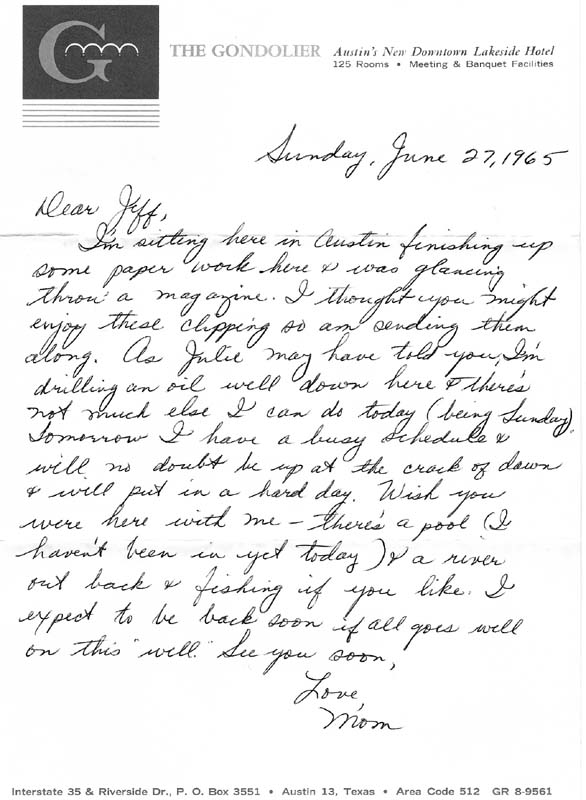 G
THE GONDOLIER Austin's New Downtown Lakeside Hotel
125 Rooms • Meeting & Banquet Facilities
Sunday, June 27, 1965
Dear Jeff,
I'm sitting here in Austin finishing up
some paper work here & was glancing
throu a magazine. I thought you might
enjoy these clipping so am sending them
along. As Julie may have told you, I'm
drilling an oil well down here & there's
not much else I can do today (being Sunday).
Tomorrow I have a busy schedule &
will no doubt be up at the crack of dawn
& will put in a hard day. Wish you
were here with me – there's a pool (I
haven't been in yet today) & a river
out back & fishing if you like. I
expect to be back soon if all goes well
on this "well." See you soon,
Love,
Mom
Interstate 35 & Riverside Dr., P. O. Box 3551 • Austin 13, Texas • Area Code 512 GR 8-9561